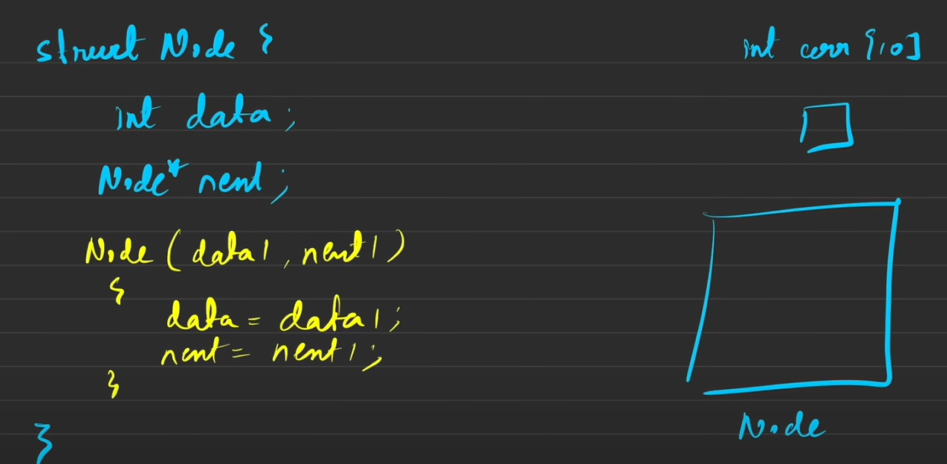 struct Node {
int data;
Node* next;
Node (data1, next1)
{
data = data1;
next = next1;
}
}
int arr [10]
Node